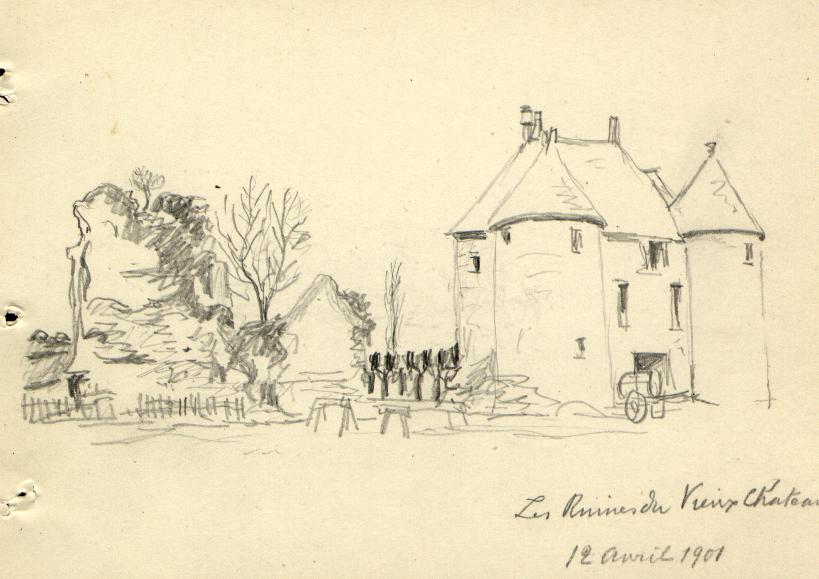 Les Ruines du Vieux Chateau
12 avril 1901